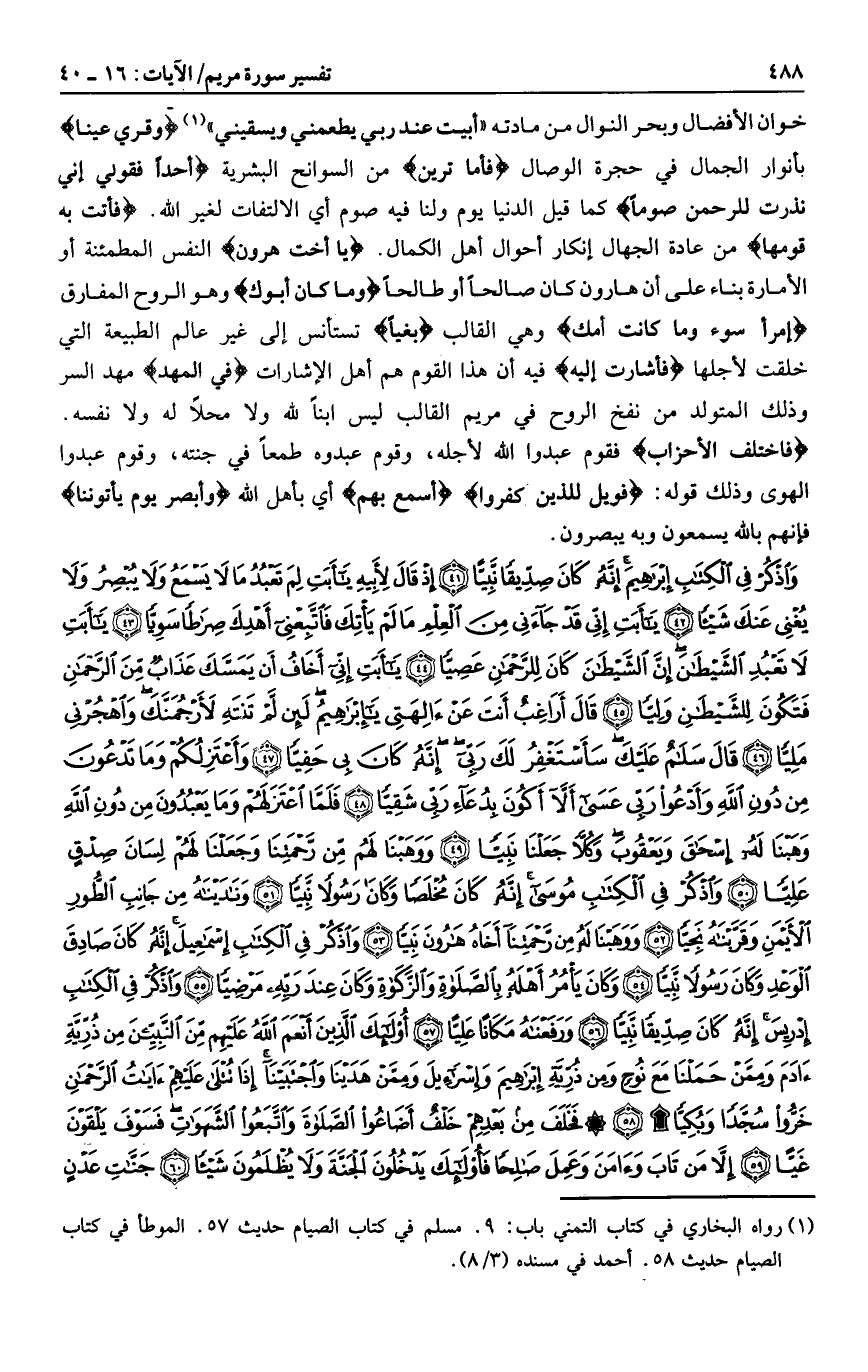 ٤٨٨ تفسير سورة مريم/ الآيات: ١٦ ـ ٤٠
خوان الأفضال وبحر النوال من مادته «أبيت عند ربي يطعمني ويسقيني»(١) ﴿وقري عينا﴾
بأنوار الجمال في حجرة الوصال ﴿فأما ترين﴾ من السوانح البشرية ﴿أحداً فقولي إني
نذرت للرحمن صوماً﴾ كما قيل الدنيا يوم ولنا فيه صوم أي الالتفات لغير الله. ﴿فأتت به
قومها﴾ من عادة الجهال إنكار أحوال أهل الكمال. ﴿يا أخت هرون﴾ النفس المطمئنة أو
الأمارة بناء على أن هارون كان صالحاً أو طالحاً ﴿وما كان أبوك﴾ وهو الروح المفارق
﴿إمرأ سوء وما كانت أمك﴾ وهي القالب ﴿بغياً﴾ تستأنس إلى غير عالم الطبيعة التي
خلقت لأجلها ﴿فأشارت إليه﴾ فيه أن هذا القوم هم أهل الإشارات ﴿في المهد﴾ مهد السر
وذلك المتولد من نفخ الروح في مريم القالب ليس ابناً لله ولا محلاً له ولا نفسه.
﴿فاختلف الأحزاب﴾ فقوم عبدوا الله لأجله، وقوم عبدوه طمعاً في جنته، وقوم عبدوا
الهوى وذلك قوله: ﴿فويل للذين كفروا﴾ ﴿أسمع بهم﴾ أي بأهل الله ﴿وأبصر يوم يأتوننا﴾
فإنهم بالله يسمعون وبه يبصرون.
وَٱذْكُرْ فِي ٱلْكِتَٰبِ إِبْرَٰهِيمَ ۚ إِنَّهُۥ كَانَ صِدِّيقًا نَّبِيًّا ﴿٤١﴾ إِذْ قَالَ لِأَبِيهِ يَٰٓأَبَتِ لِمَ تَعْبُدُ مَا لَا يَسْمَعُ وَلَا يُبْصِرُ وَلَا
يُغْنِي عَنكَ شَيْـًٔا ﴿٤٢﴾ يَٰٓأَبَتِ إِنِّي قَدْ جَآءَنِي مِنَ ٱلْعِلْمِ مَا لَمْ يَأْتِكَ فَٱتَّبِعْنِيٓ أَهْدِكَ صِرَٰطًا سَوِيًّا ﴿٤٣﴾ يَٰٓأَبَتِ
لَا تَعْبُدِ ٱلشَّيْطَٰنَ ۖ إِنَّ ٱلشَّيْطَٰنَ كَانَ لِلرَّحْمَٰنِ عَصِيًّا ﴿٤٤﴾ يَٰٓأَبَتِ إِنِّيٓ أَخَافُ أَن يَمَسَّكَ عَذَابٌ مِّنَ ٱلرَّحْمَٰنِ
فَتَكُونَ لِلشَّيْطَٰنِ وَلِيًّا ﴿٤٥﴾ قَالَ أَرَاغِبٌ أَنتَ عَنْ ءَالِهَتِي يَٰٓإِبْرَٰهِيمُ ۖ لَئِن لَّمْ تَنتَهِ لَأَرْجُمَنَّكَ ۖ وَٱهْجُرْنِي
مَلِيًّا ﴿٤٦﴾ قَالَ سَلَٰمٌ عَلَيْكَ ۖ سَأَسْتَغْفِرُ لَكَ رَبِّيٓ ۖ إِنَّهُۥ كَانَ بِي حَفِيًّا ﴿٤٧﴾ وَأَعْتَزِلُكُمْ وَمَا تَدْعُونَ
مِن دُونِ ٱللَّهِ وَأَدْعُوا۟ رَبِّي عَسَىٰٓ أَلَّآ أَكُونَ بِدُعَآءِ رَبِّي شَقِيًّا ﴿٤٨﴾ فَلَمَّا ٱعْتَزَلَهُمْ وَمَا يَعْبُدُونَ مِن دُونِ ٱللَّهِ
وَهَبْنَا لَهُۥٓ إِسْحَٰقَ وَيَعْقُوبَ ۖ وَكُلًّا جَعَلْنَا نَبِيًّا ﴿٤٩﴾ وَوَهَبْنَا لَهُم مِّن رَّحْمَتِنَا وَجَعَلْنَا لَهُمْ لِسَانَ صِدْقٍ
عَلِيًّا ﴿٥٠﴾ وَٱذْكُرْ فِي ٱلْكِتَٰبِ مُوسَىٰٓ ۚ إِنَّهُۥ كَانَ مُخْلَصًا وَكَانَ رَسُولًا نَّبِيًّا ﴿٥١﴾ وَنَٰدَيْنَٰهُ مِن جَانِبِ ٱلطُّورِ
ٱلْأَيْمَنِ وَقَرَّبْنَٰهُ نَجِيًّا ﴿٥٢﴾ وَوَهَبْنَا لَهُۥ مِن رَّحْمَتِنَآ أَخَاهُ هَٰرُونَ نَبِيًّا ﴿٥٣﴾ وَٱذْكُرْ فِي ٱلْكِتَٰبِ إِسْمَٰعِيلَ ۚ إِنَّهُۥ كَانَ صَادِقَ
ٱلْوَعْدِ وَكَانَ رَسُولًا نَّبِيًّا ﴿٥٤﴾ وَكَانَ يَأْمُرُ أَهْلَهُۥ بِٱلصَّلَوٰةِ وَٱلزَّكَوٰةِ وَكَانَ عِندَ رَبِّهِۦ مَرْضِيًّا ﴿٥٥﴾ وَٱذْكُرْ فِي ٱلْكِتَٰبِ
إِدْرِيسَ ۚ إِنَّهُۥ كَانَ صِدِّيقًا نَّبِيًّا ﴿٥٦﴾ وَرَفَعْنَٰهُ مَكَانًا عَلِيًّا ﴿٥٧﴾ أُو۟لَٰٓئِكَ ٱلَّذِينَ أَنْعَمَ ٱللَّهُ عَلَيْهِم مِّنَ ٱلنَّبِيِّـۧنَ مِن ذُرِّيَّةِ
ءَادَمَ وَمِمَّنْ حَمَلْنَا مَعَ نُوحٍ وَمِن ذُرِّيَّةِ إِبْرَٰهِيمَ وَإِسْرَٰٓءِيلَ وَمِمَّنْ هَدَيْنَا وَٱجْتَبَيْنَآ ۚ إِذَا تُتْلَىٰ عَلَيْهِمْ ءَايَٰتُ ٱلرَّحْمَٰنِ
خَرُّوا۟ سُجَّدًا وَبُكِيًّا ۩ ﴿٥٨﴾ ۞ فَخَلَفَ مِنۢ بَعْدِهِمْ خَلْفٌ أَضَاعُوا۟ ٱلصَّلَوٰةَ وَٱتَّبَعُوا۟ ٱلشَّهَوَٰتِ ۖ فَسَوْفَ يَلْقَوْنَ
غَيًّا ﴿٥٩﴾ إِلَّا مَن تَابَ وَءَامَنَ وَعَمِلَ صَٰلِحًا فَأُو۟لَٰٓئِكَ يَدْخُلُونَ ٱلْجَنَّةَ وَلَا يُظْلَمُونَ شَيْـًٔا ﴿٦٠﴾ جَنَّٰتِ عَدْنٍ
(١) رواه البخاري في كتاب التمني باب: ٩. مسلم في كتاب الصيام حديث ٥٧. الموطأ في كتاب
الصيام حديث ٥٨. أحمد في مسنده (٨/٣).